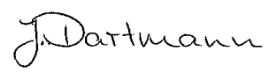 J. Dartmann